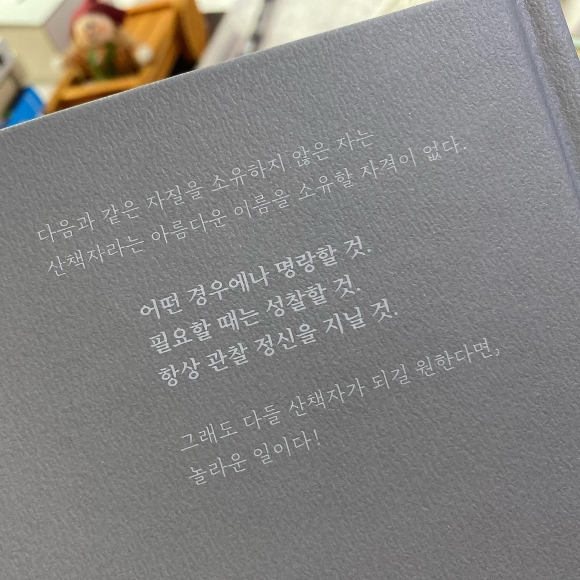 다음과 같은 자질을 소유하지 않은 자는
산책자라는 아름다운 이름을 소유할 자격이 없다.
어떤 경우에나 명랑할 것.
필요할 때는 성찰할 것.
항상 관찰 정신을 지닐 것.
그래도 다들 산책자가 되길 원한다면,
놀라운 일이다!